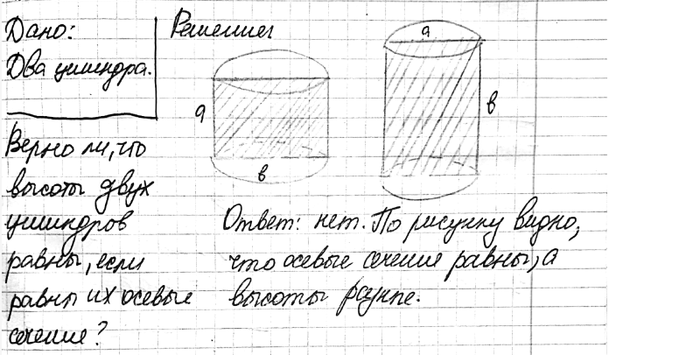 Дано:
Два цилиндра.
Верно ли, что
высоты двух
цилиндров
равны, если
равны их осевые
сечение?
Решение:
a
в
a
в
Ответ: нет. По рисунку видно,
что осевые сечение равны, а
высоты разные.